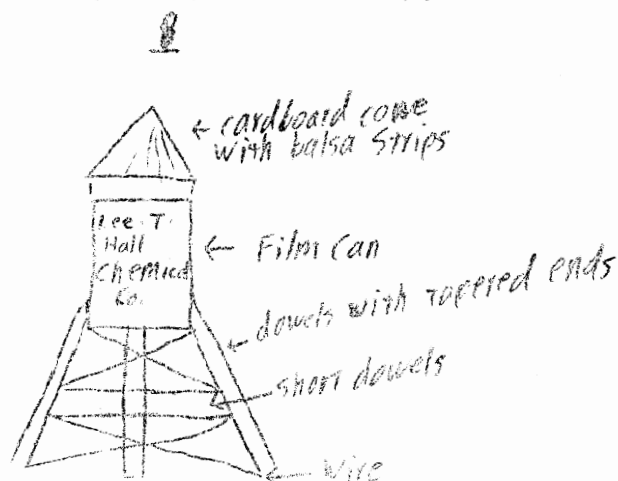 8
cardboard cone
with balsa Strips
Lee T.
Hall
Chemical
Co.
Film Can
dowels with tapered ends
short dowels
Wire